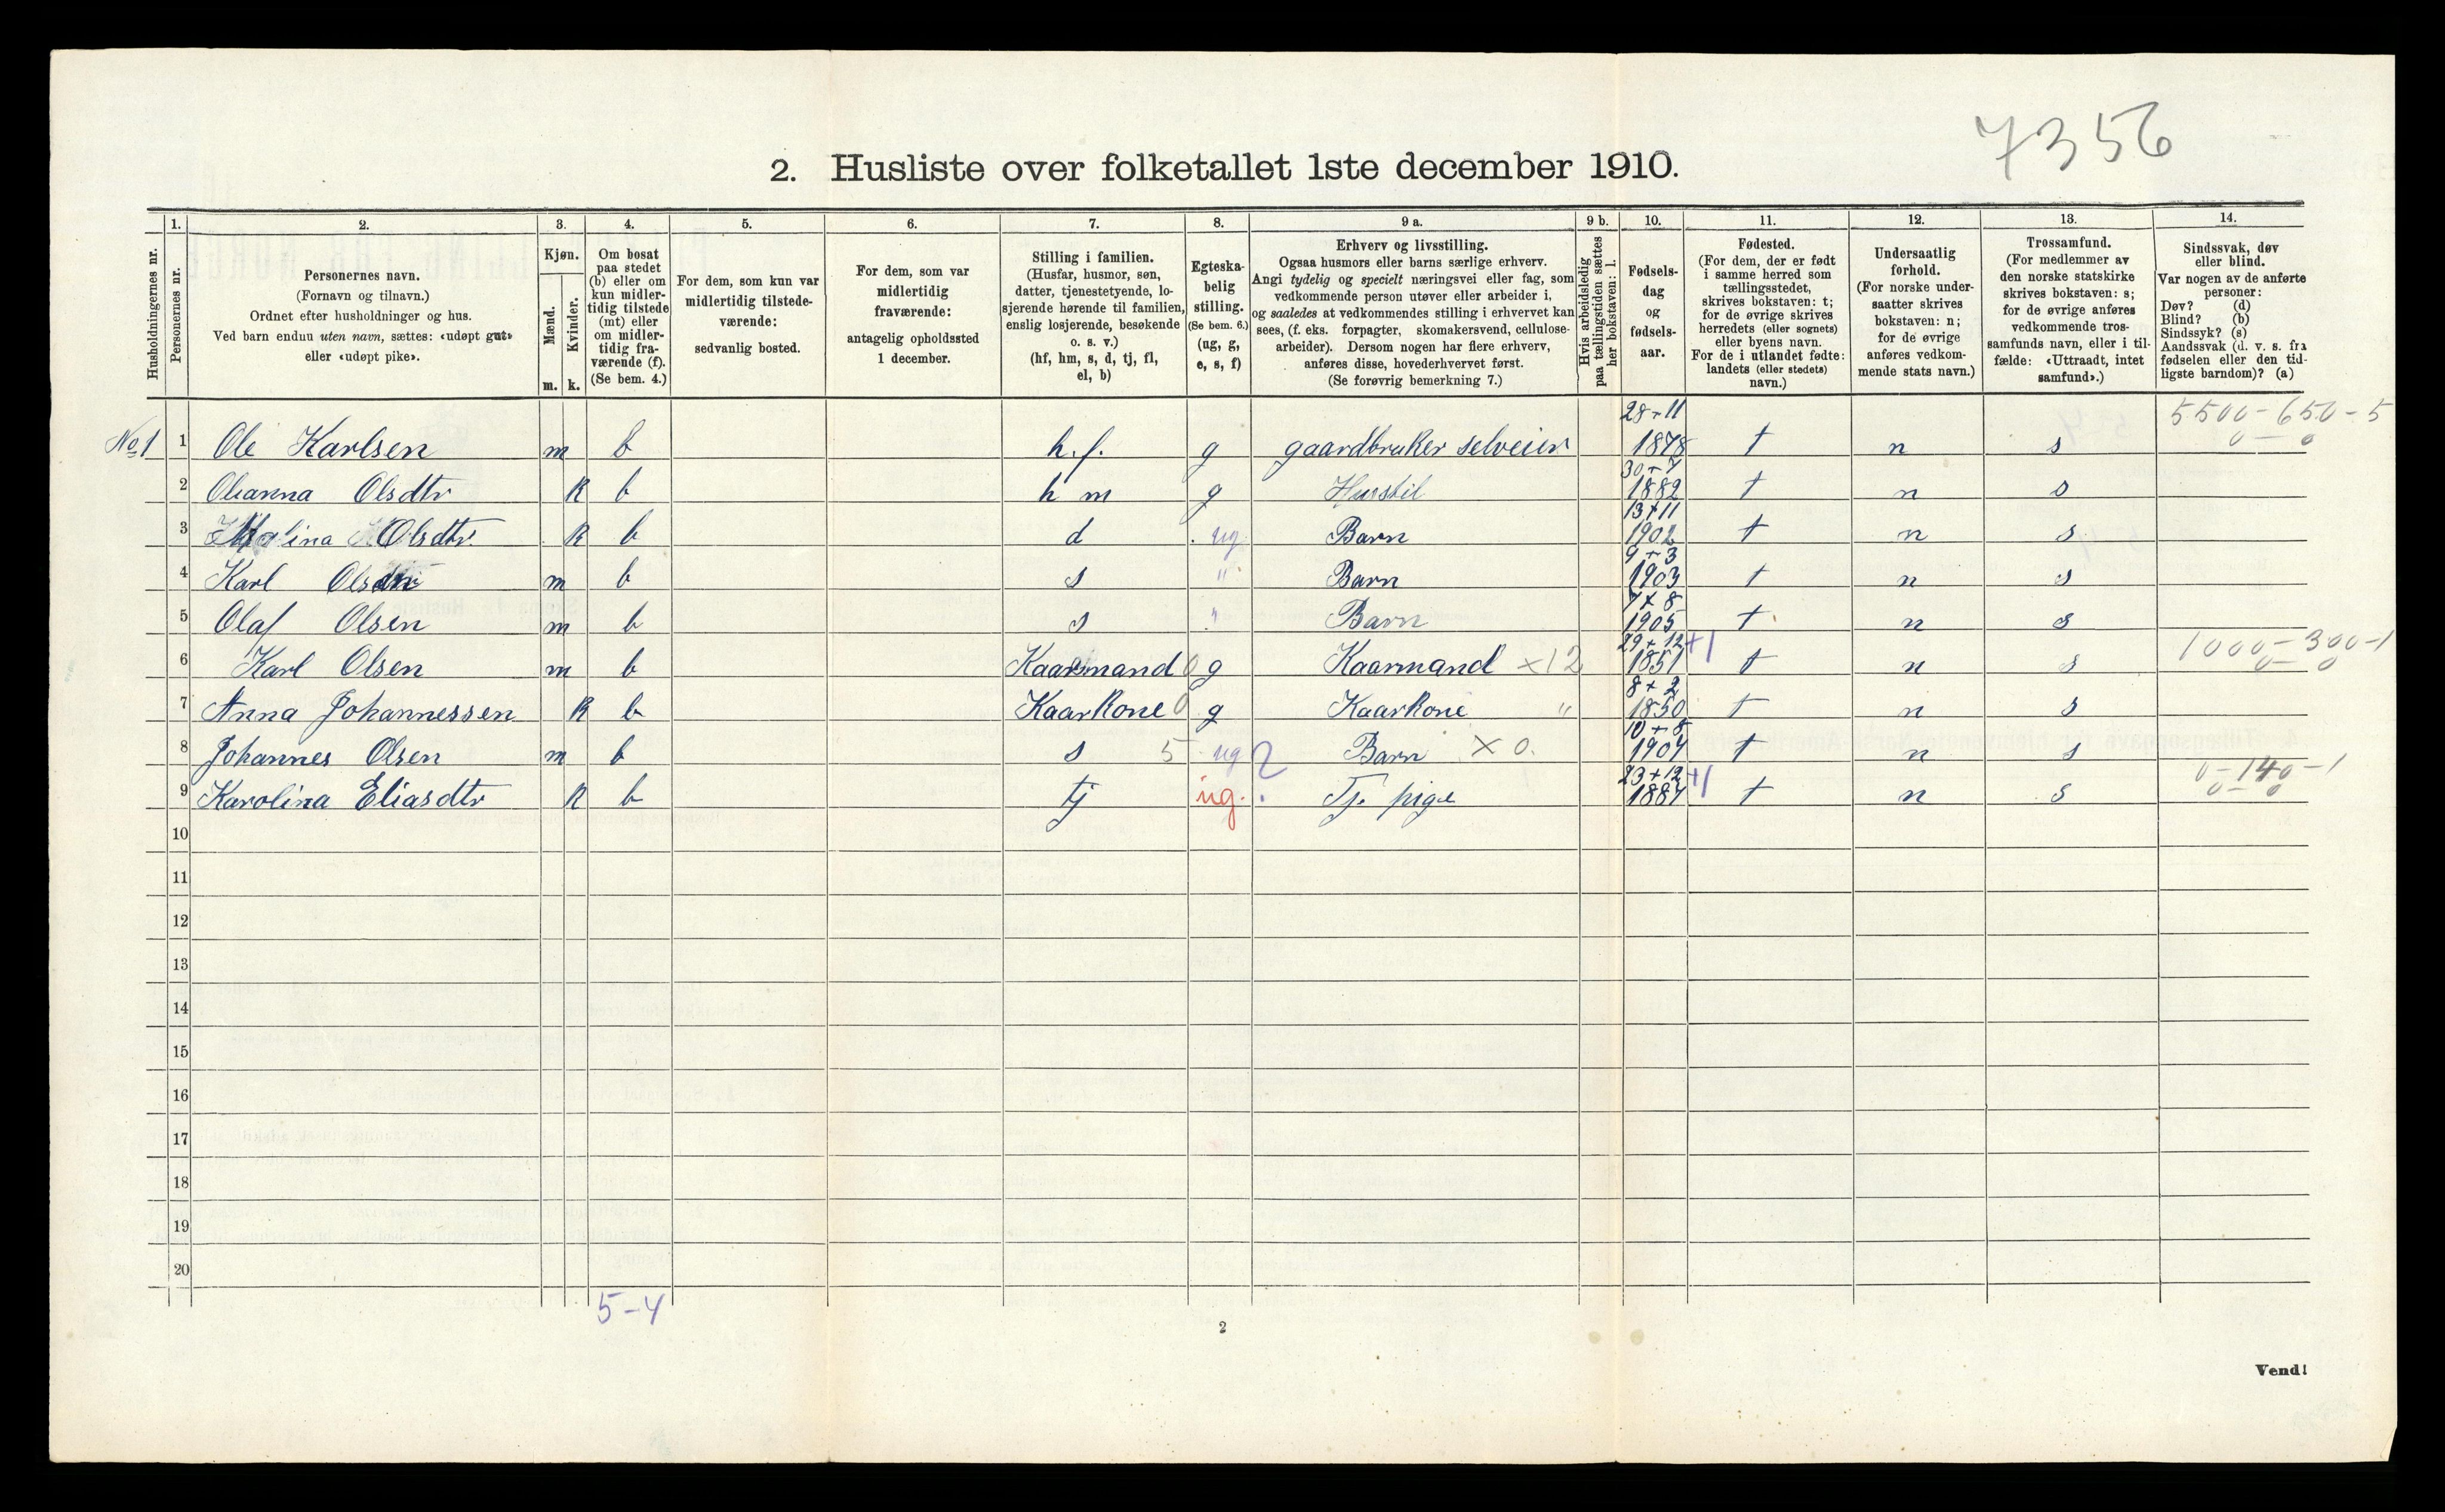 7356
2. Husliste over folketallet 1ste december 1910.
Husholdningernes nr.
1. Personernes nr.
2. Personernes navn.
(Fornavn og tilnavn.)
Ordnet efter husholdninger og hus.
Ved barn endnu uten navn, sættes: «udøpt gut»
eller «udøpt pike».
3. Kjøn.
Mænd. m.
Kvinder. k.
4. Om bosat
paa stedet
(b) eller om
kun midler-
tidig tilstede
(mt) eller
om midler-
tidig fra-
værende (f).
(Se bem. 4.)
5. For dem, som kun var
midlertidig tilstede-
værende:
sedvanlig bosted.
6. For dem, som var
midlertidig
fraværende:
antagelig opholdssted
1 december.
7. Stilling i familien.
(Husfar, husmor, søn,
datter, tjenestetyende, lo-
sjerende hørende til familien,
enslig losjerende, besøkende
o. s. v.)
(hf, hm, s, d, tj, fl,
el, b)
8. Egteska-
belig
stilling.
(Se bem. 6.)
(ug, g,
e, s, f)
9 a. Erhverv og livsstilling.
Ogsaa husmors eller barns særlige erhverv.
Angi tydelig og specielt næringsvei eller fag, som
vedkommende person utøver eller arbeider i,
og saaledes at vedkommendes stilling i erhvervet kan
sees, (f. eks. forpagter, skomakersvend, cellulose-
arbeider). Dersom nogen har flere erhverv,
anføres disse, hovederhvervet først.
(Se forøvrig bemerkning 7.)
9 b. Hvis arbeidsledig
paa tællingstiden sættes
her bokstaven: l.
10. Fødsels-
dag
og
fødsels-
aar.
11. Fødested.
(For dem, der er født
i samme herred som
tællingsstedet,
skrives bokstaven: t;
for de øvrige skrives
herredets (eller sognets)
eller byens navn.
For de i utlandet fødte:
landets (eller stedets)
navn.)
12. Undersaatlig
forhold.
(For norske under-
saatter skrives
bokstaven: n;
for de øvrige
anføres vedkom-
mende stats navn.)
13. Trossamfund.
(For medlemmer av
den norske statskirke
skrives bokstaven: s;
for de øvrige anføres
vedkommende tros-
samfunds navn, eller i til-
fælde: «Uttraadt, intet
samfund».)
14. Sindssvak, døv
eller blind.
Var nogen av de anførte
personer:
Døv? (d)
Blind? (b)
Sindssyk? (s)
Aandssvak (d. v. s. fra
fødselen eller den tid-
ligste barndom)? (a)
No 1 1 Ole Karlsen m b h.f. g gaardbruker selveier 28-11 1878 t n s 5500-650-5 0-0
2 Olianna Olsdtr k b h m g Husstil 30-7 1882 t n s
3 Olsdtr k b d ug Barn 13+11 1902 t n s
4 Karl m b s " Barn 9+3 1903 t n s
5 Olaf Olsen m b s " Barn 7+8 1905 t n s
6 Karl Olsen m b Kaarmand 0 g Kaarmand x12 29+12 1851 +1 t n s 1000-300-1 0-0
7 Anna Johannessen k b Kaarkone 0 g Kaarkone " 8+2 1850 t n s
8 Johannes Olsen m b s 5 ug Barn X 0. 10+8 1907 t n s
9 Karolina Eliasdtr k b tj ug. Tj. pige 23+12 1887 +1 t n s 0-140-1 0-0
10
11
12
13
14
15
16
17
18
19
20
5-4
2
Vend!